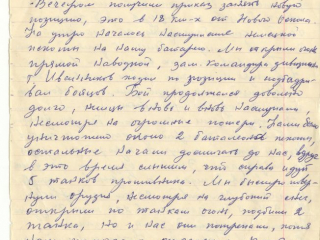 - Вечером получили приказ занять новую
позицию, это в 18 км-х от Новой
Но утро началось наступление немецкой
пехоты на нашу батарею. Мы открыли огонь
прямой наводкой, зам. командира дивизиона
Иванников ходил по позиции и подбадри-
вал бойцов. Бой продолжался довольно
долго, немцы вновь и вновь наступали,
несмотря на огромные потери. Нами был
уничтожен около 2 батальонов пехоты,
остальные начали до нас, вдруг
в это время слышим, что справа идут
5 танков противника. Мы быстро
орудия, несмотря на глубокий снег,
открыли по танкам огонь, подбили 2
танка, но и нас они потрепали,